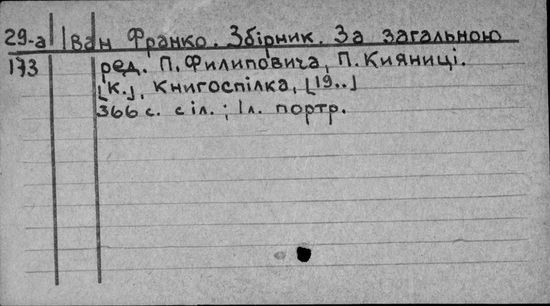 29-а Іван Франко. Збірник. За загальною
173 ред. П. Филиповича, П. Кияниці.
[К.], Книгоспілка, [19..]
366 с. с іл.; 1 л. портр.